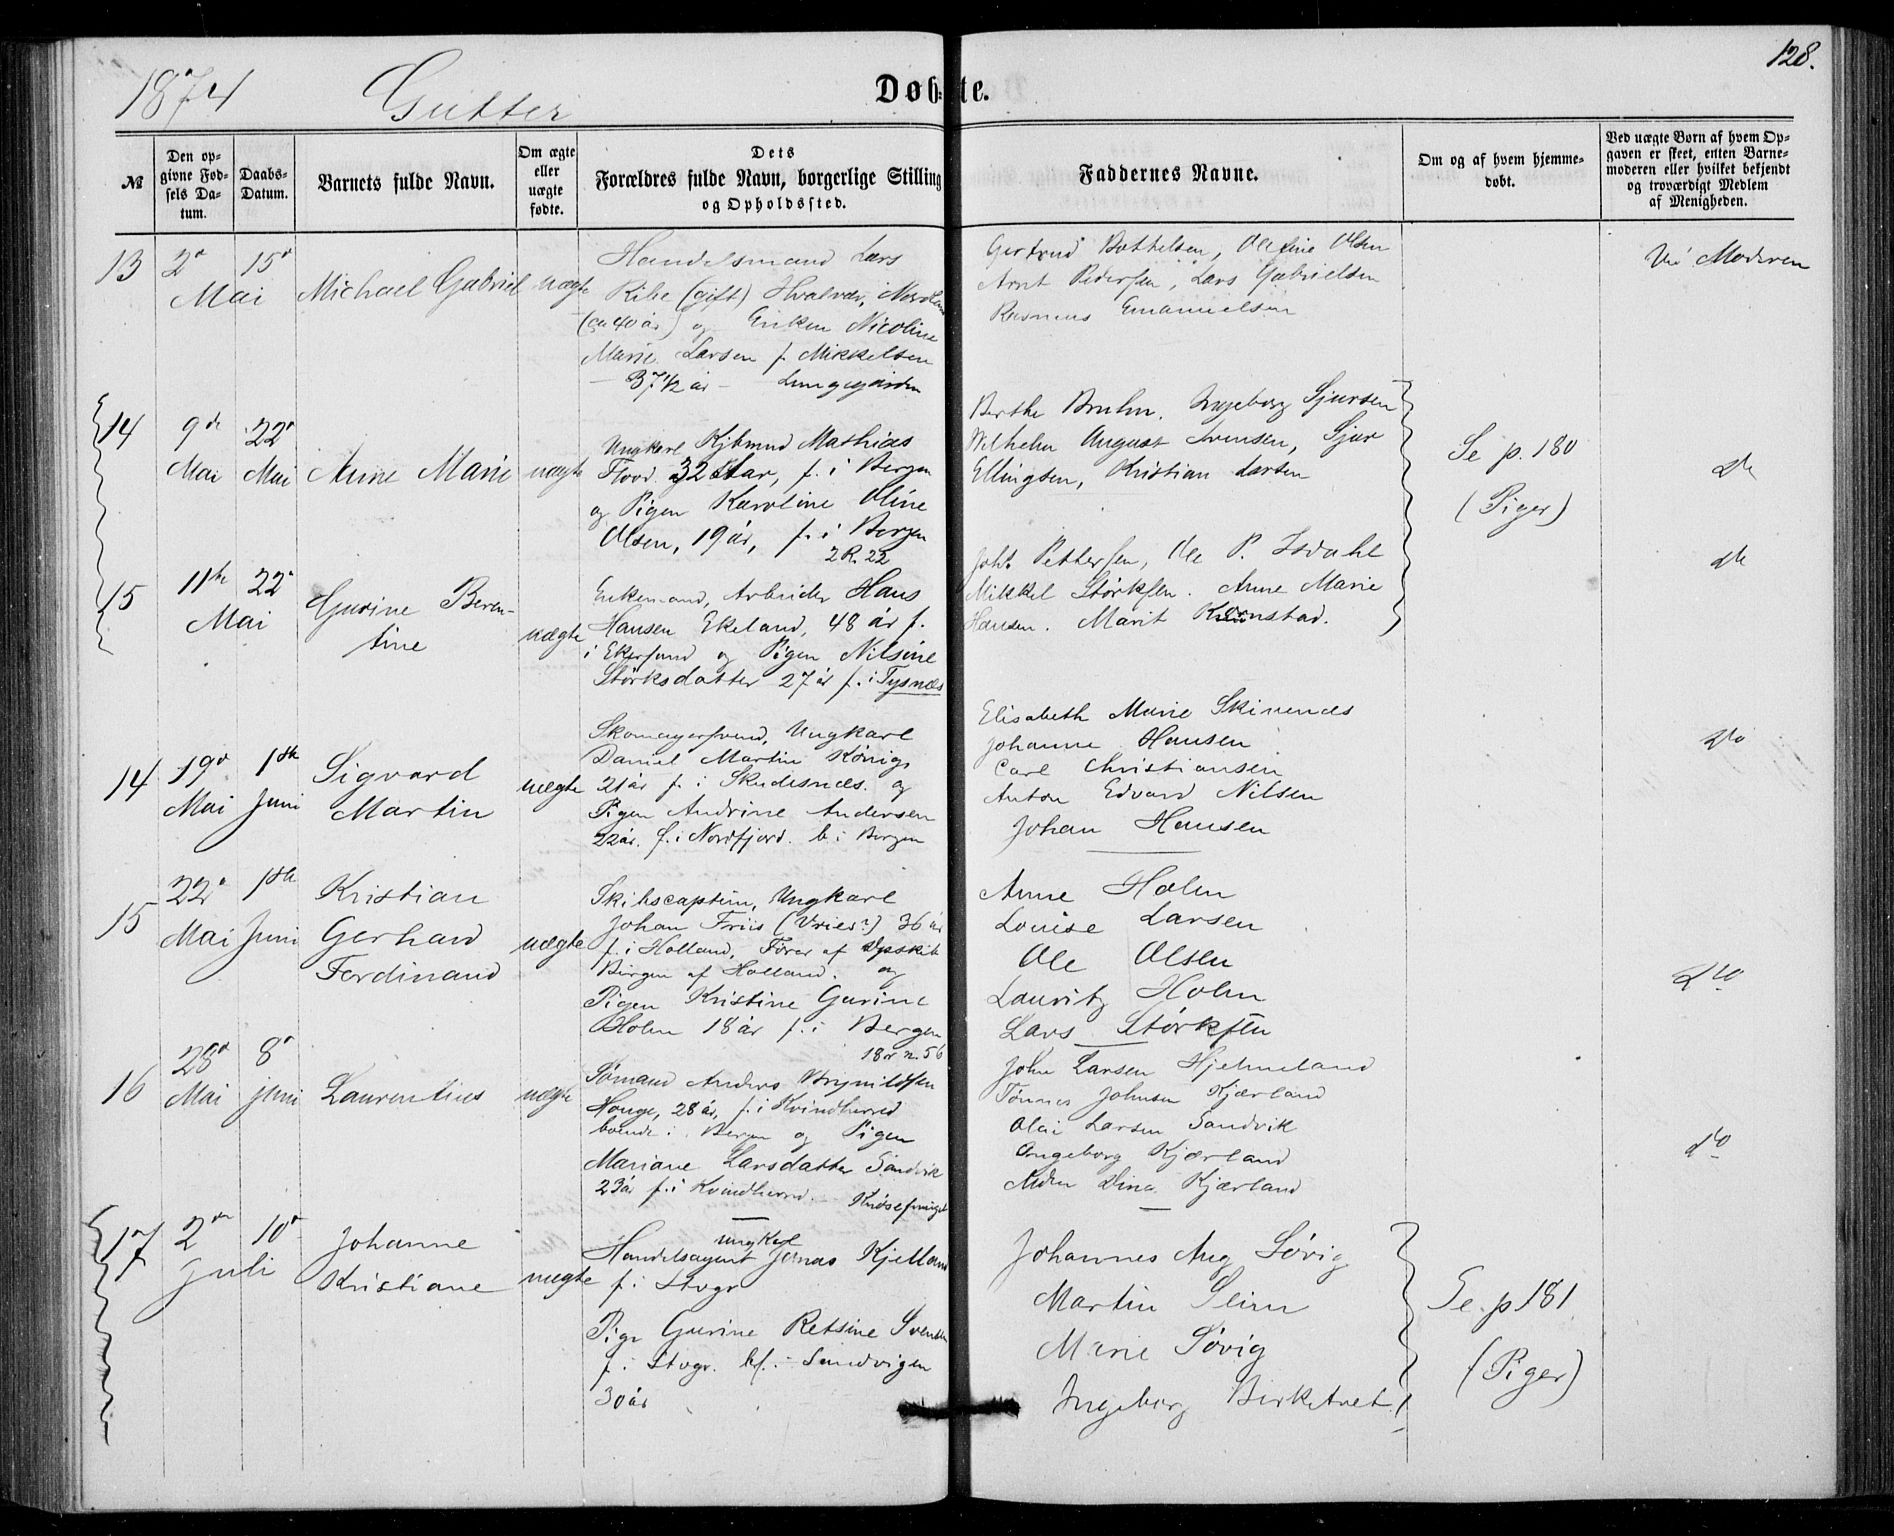 128.
1874 Gutter
Døb-te.
№
Den op-
givne Fød-
sels Da-
tum.
Daabs-
Datum.
Barnets fulde Navn.
Om ægte
eller
uægte
fødte.
Dets
Forældres fulde Navn, borgerlige Stilling
og Opholdssted.
Faddernes Navne.
Om og af hvem hjemme-
døbt.
Ved uægte Børn af hvem Op-
gaven er skeet, enten Barne-
moderen eller hvilket bekjendt
og troværdigt Medlem
af Menigheden.
13
2d 15d
Mai
Michael Gabriel
uægte
Handelsmand Lars
Ribe (gift) Hvalvær, Nordland
(ca 40 år) og Enken Nicoline
Marie Larsen f. Mikkelsen
— 37½ år — Lungegården
Gertrud Bottelsen, Oline Olsen
Arnt Pedersen, Lars Gabrielsen
Rasmus Emanuelsen
Ved Moderen
14
9de 22d
Mai Mai
Anne Marie
uægte
Ungkarl Kjbmnd Mathias
32 Aar, f. i Bergen
og Pigen Karoline Oline
Olsen, 19 år, f. i Bergen
2 R. 22
Berthe Bruhn, Ingeborg Sjursen
Wilhelm August Svensen, Sjur
Ellingsen, Kristian Larsen
Se p. 180
(Piger)
do
15
11te 22d
Mai
Gurine Beren-
tine
uægte
Enkemand, Arbeider Hans
Hansen Ekeland, 48 år f.
i Ekersund og Pigen Nilsine
Størksdatter 27 år f. i Tysnæs
Joh. Pettersen, Ole P. Isdahl
Mikkel Størksen. Anne Marie
Hansen. Marit
do
14
19d 1ste
Mai Juni
Sigvard
Martin
uægte
Skomagersvend, Ungkarl
Daniel Martin Königs
21 år f. i Skudesnæs. og
Pigen Andrine Andersen
22 år. f. i Nordfjord. b. i Bergen
Elisabeth Marie Skinenes
Johanne Hansen
Carl Christiansen
Anton Edvard Nilsen
Johan Hansen
do
15
22d 1ste
Mai Juni
Kristian
Gerhard
Ferdinand
uægte
Skibscaptein, Ungkarl
Johan Friis (Vries?) 36 år
f. i Holland, Fører af Dpskib
Bürgen af Holland. og
Pigen Kristine Gurine
Holm 18 år f. i Bergen
18 n. 56
Anne Holm
Louise Larsen
Ole Olsen
Lauritz Holm
Lars Størksen
do
16
28d 8d
Mai juni
Laurentius
uægte
Sømand Anders Brynildsen
Houge, 28 år, f. i Kvindherred
boende i Bergen og Pigen
Mariane Larsdatter Sandvik
23 år f. i Kvindherred.
John Larsen Hjelmeland
Tønnes Johnsen Kjærland
Olai Larsen Sandvik
Ingeborg Kjærland
Dina Kjærland
do
17
2den 10d
Juli
Johanne
Kristiane
uægte
ungkarl
Handelsagent Jonas Kjelland
f. i Stvgr
Pige Gurine Retsine Svendsen
f. i Stvgr. bf. i Sandvigen
30 år
Johannes Aug Søvig
Martin Slim
Marie Søvig
Ingeborg Birketvet
Se p 181
(Piger)